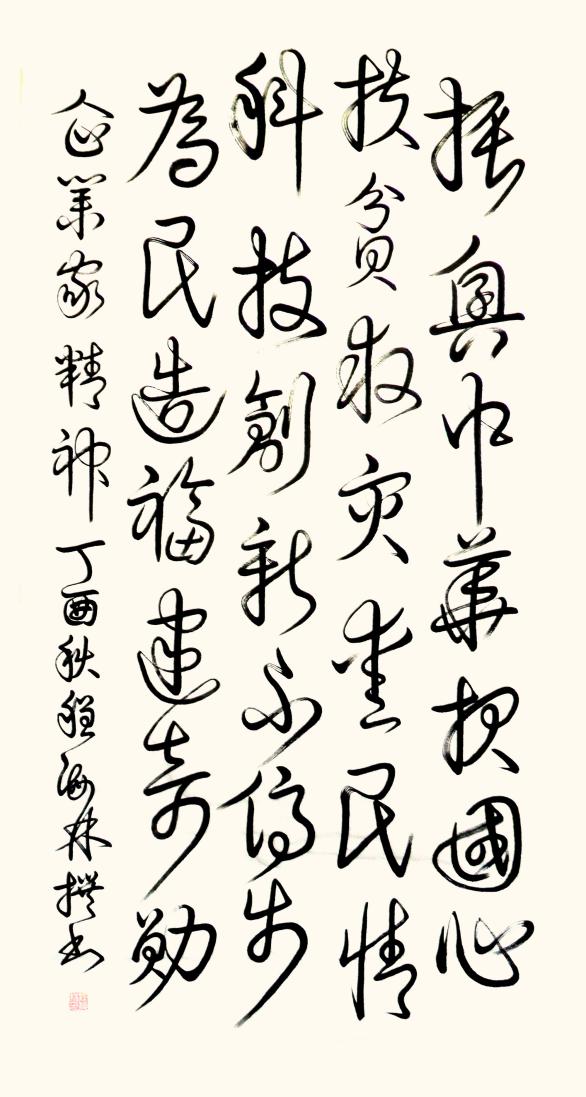 振興中華报國心
扶貧救灾民情
科技創新不停步
為民造福建奇勋
企業家精神 丁酉秋海林撰书